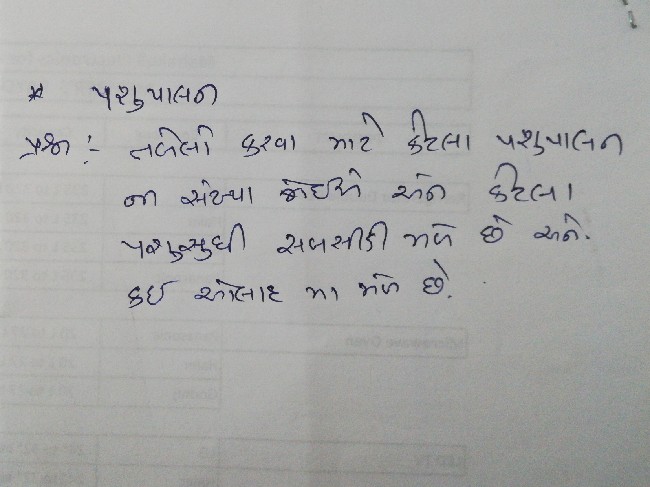 * પશુપાલન
પ્રશ્ન :- તબેલો કરવા માટે કેટલા પશુપાલન
ના સંખ્યા જોઈએ અને કેટલા
પશુસુધી સબસીડી મળે છે અને.
કઈ ઓલાદ મા મળે છે.